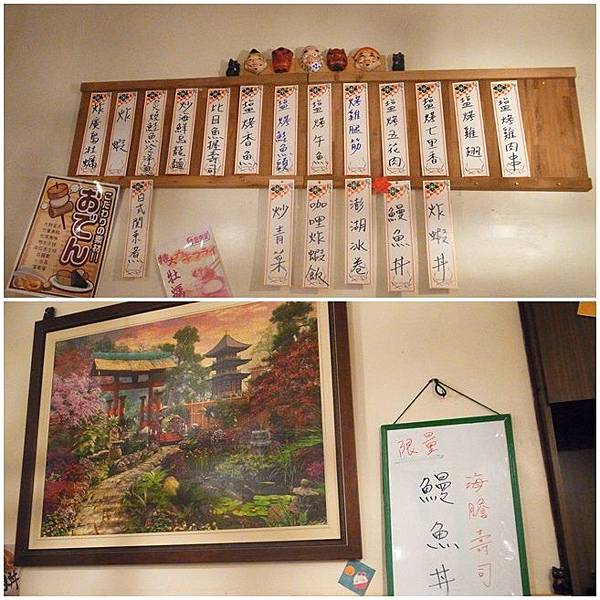 鹽烤雞肉串
鹽烤雞翅
鹽烤七里香
鹽烤五花肉
烤雞腿筋
鹽烤午魚
鹽烤鮭魚頭
鹽烤香魚
比目魚握壽司
炒海鮮烏龍麵
炸蝦
炸廣島牡蠣
炸蝦丼
鰻魚丼
澎湖冰卷
咖哩炸蝦飯
炒青菜
日式関東煮
こだわりの素材!!
おでん
牡蠣
限量
鰻魚丼
海膽壽司